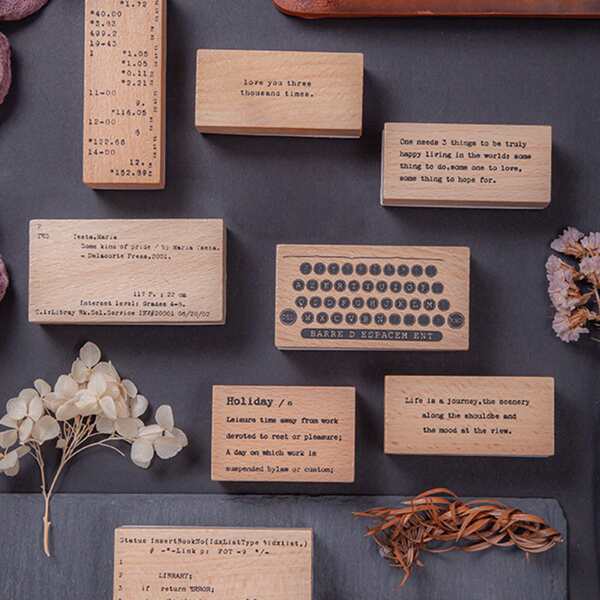 *1.72
*40.00
*3.63
499.2
19-43
1 *1.05
*1.05
*0.11
*2.21
11-00
9.
*116.05
12-00
6
*122.66
14-00
12.
*152.89
love you three
thousand times.
One needs 3 things to be truly
happy living in the world: some
thing to do,some one to love,
some thing to hope for.
Testa,Maria
Some kine of pride / by Maria Testa.
- Delacorte Press,2001.
117 P. ; 22 cm
Interest level: Grades 4-8.
BARRE D ESPACEM ENT
Holiday / n
Leisure time away from work
devoted to rest or pleasure;
A day on which work is
suspended bylaw or custom;
Life is a journey,the scenery
along the shouldbe and
the mood at the view.
Status InsertBookNo(IdxListType
1
2 LIBRARY;
3 if return ERROR;